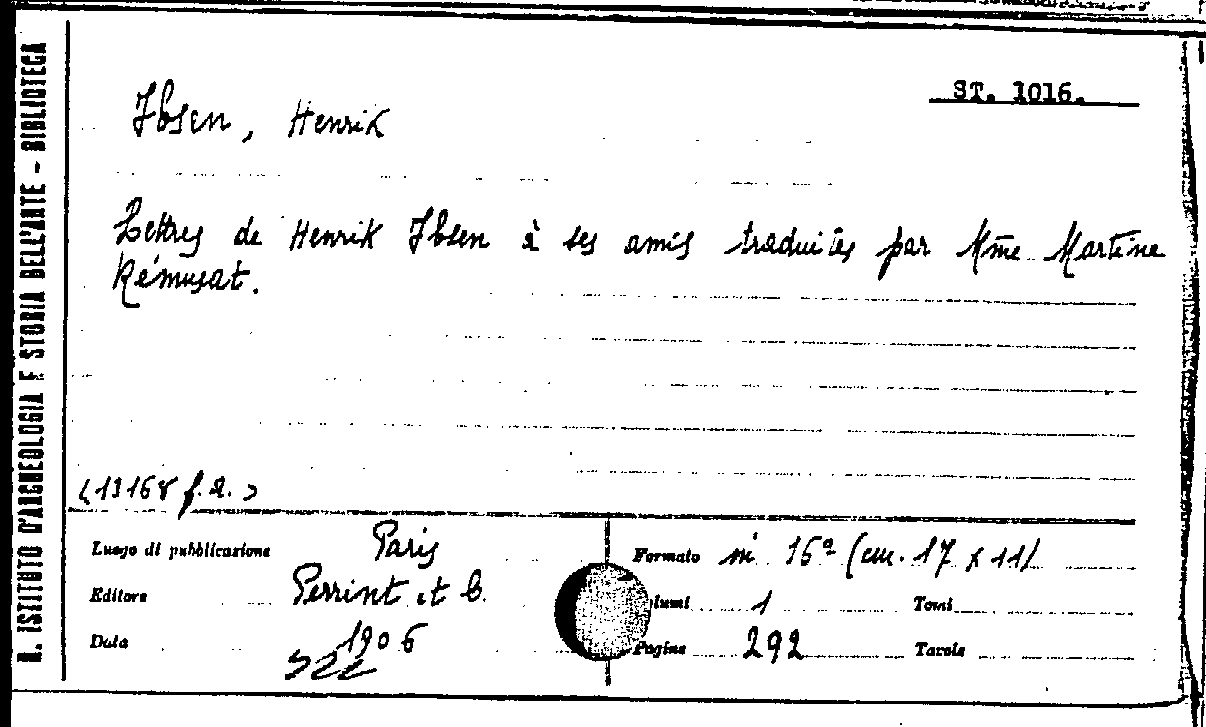 R. ISTITUTO D'ARCHEOLOGIA E STORIA DELL'ARTE - BIBLIOTECA
ST. 1016.
Ibsen, Henrik
Lettres de Henrik Ibsen à ses amis traduites par Mme Martine
Rémusat.
Luogo di pubblicazione Paris
Formato in 16º (cm. 17 x 11)
Editore Perrint et C.
lumi 1 Tomi
Data 1906
Pagine 292 Tavole